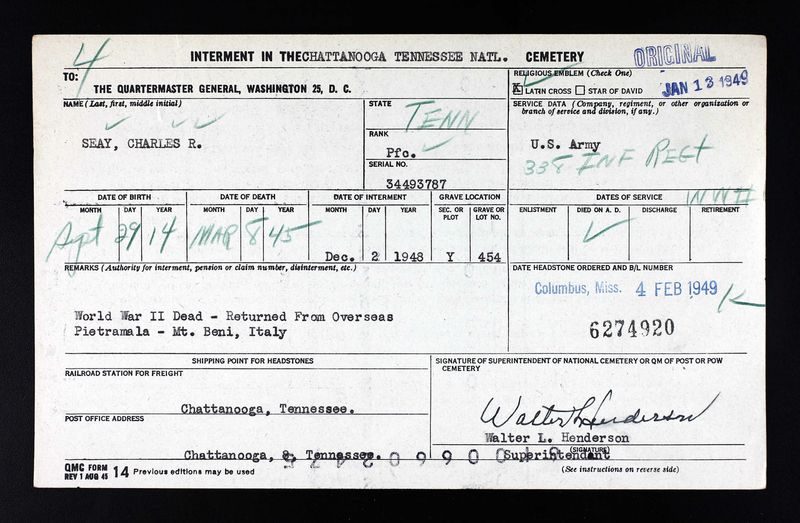 4
INTERMENT IN THE CHATTANOOGA TENNESSEE NATL. CEMETERY
ORIGINAL
TO:
THE QUARTERMASTER GENERAL, WASHINGTON 25, D. C.
RELIGIOUS EMBLEM (Check One)
X LATIN CROSS STAR OF DAVID
JAN 13 1949
NAME (Last, first, middle initial)
SEAY, CHARLES R.
STATE
TENN
RANK
Pfc.
SERIAL NO.
34493787
SERVICE DATA (Company, regiment, or other organization or
branch of service and division, if any.)
U.S. Army
338 INF REGT
WWII
DATE OF BIRTH DATE OF DEATH DATE OF INTERMENT GRAVE LOCATION DATES OF SERVICE
MONTH DAY YEAR MONTH DAY YEAR MONTH DAY YEAR SEC. OR PLOT GRAVE OR LOT NO. ENLISTMENT DIED ON A. D. DISCHARGE RETIREMENT
Sept 29 14 MAR 8 45 Dec. 2 1948 Y 454
REMARKS (Authority for interment, pension or claim number, disinterment, etc.)
World War II Dead - Returned From Overseas
Pietramala - Mt. Beni, Italy
DATE HEADSTONE ORDERED AND B/L NUMBER
Columbus, Miss. 4 FEB 1949
K
6274920
SHIPPING POINT FOR HEADSTONES
RAILROAD STATION FOR FREIGHT
Chattanooga, Tennessee.
POST OFFICE ADDRESS
Chattanooga, Tennessee.
SIGNATURE OF SUPERINTENDENT OF NATIONAL CEMETERY OR QM OF POST OR POW
CEMETERY
Walter L Henderson
Walter L. Henderson
(SIGNATURE)
Superintendant
QMC FORM
REV 1 AUG 45 14 Previous editions may be used
(See instructions on reverse side)